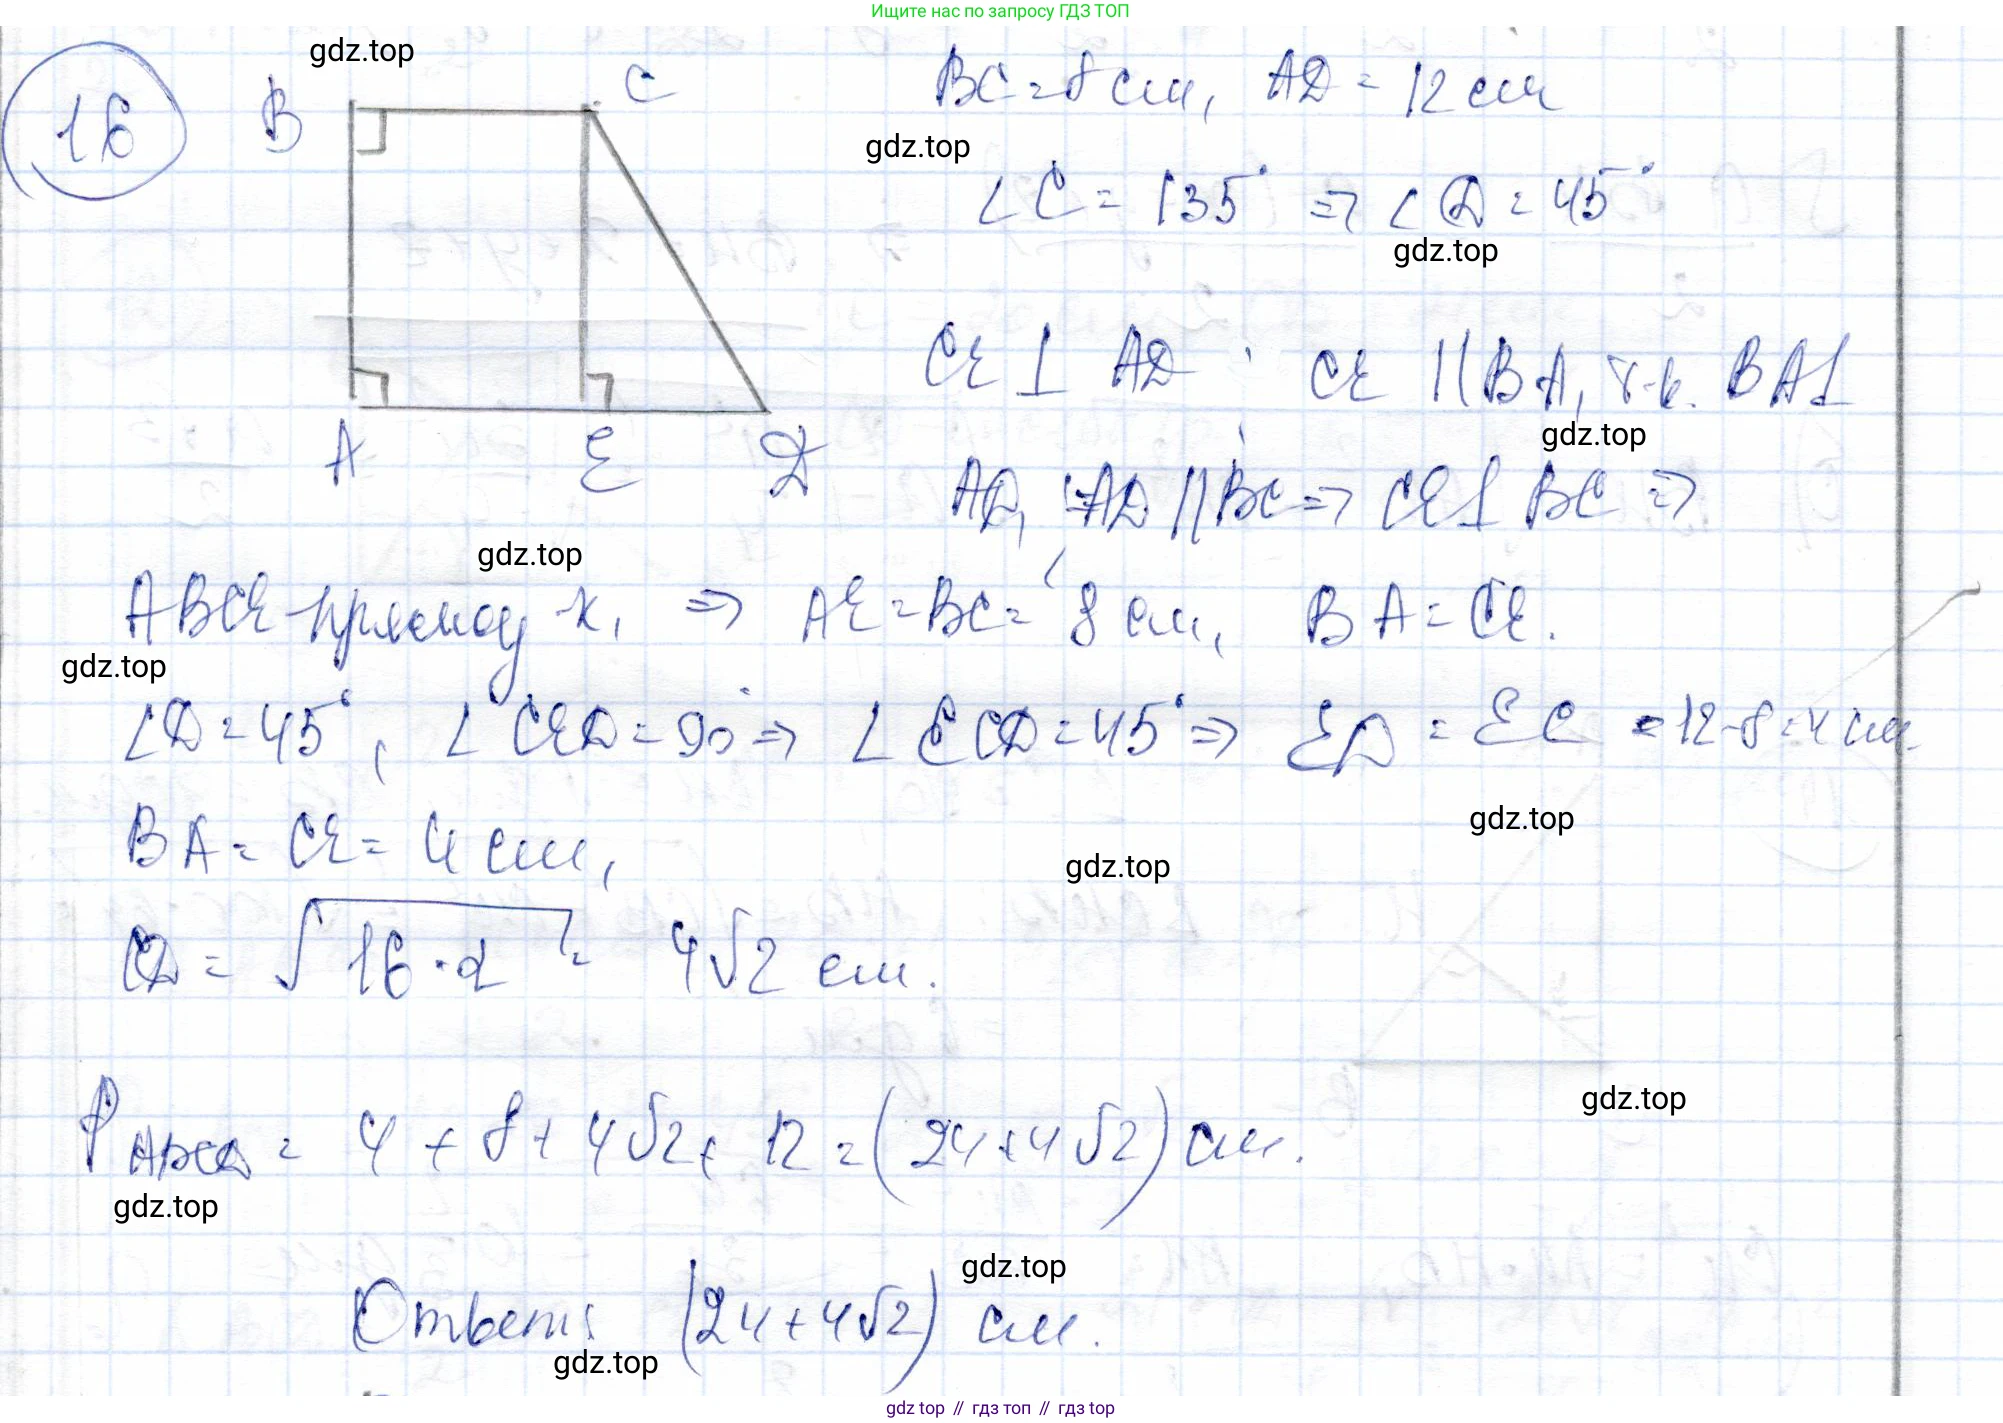 Ищите нас по запросу ГДЗ ТОП
gdz.top
16
B C
BC = 8 см, AD = 12 см
gdz.top
∠C = 135° => ∠D = 45°
gdz.top
CE ⊥ AD, CE || BA, т.к. BA ⊥
gdz.top
A E D
AD, AD || BC => CE ⊥ BC =>
gdz.top
ABCE - прямоуг-к, => AE = BC = 8 см, BA = CE.
gdz.top
∠D = 45°, ∠CED = 90° => ∠ECD = 45° => ED = EC = 12-8 = 4 см
gdz.top
BA = CE = 4 см,
gdz.top
CD = √16·2 = 4√2 см.
gdz.top
P ABCD = 4 + 8 + 4√2 + 12 = (24+4√2) см.
gdz.top
gdz.top
Ответ: (24+4√2) см.
gdz.top
gdz top // гдз топ // гдз top